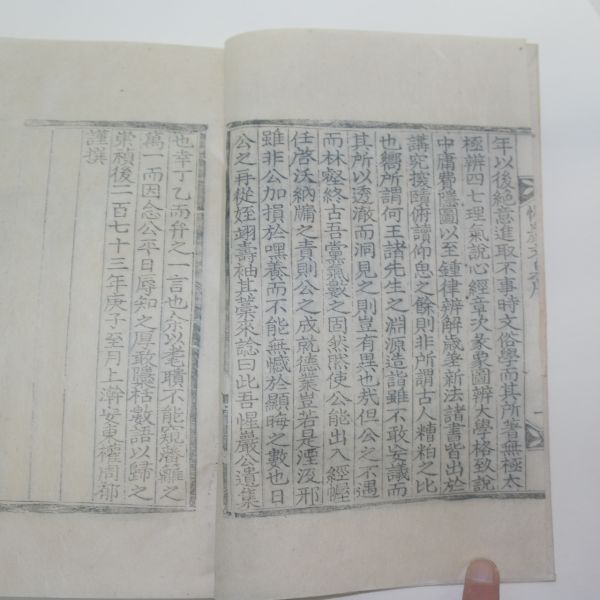 年以後絕意進取不事時文俗學而其所著無極太
極辨四七理氣說心經章次彖象圖辨大學格致說
中庸費隱圖以至鍾律辨解歲差新法諸書皆出於
講究機賾俯讀仰思之餘則非所謂古人糟粕之比
也嚮所謂何王諸先生之淵源造詣雖不敢妄議而
其所以透澈而洞見之則豈有異也哉但公之不遇
而林壑終古吾黨氣數之固然然使公能出入經幄
任啓沃納牖之責則公之成就德業豈若是湮沒邪
雖非公加損於嘿養而不能無憾於顯晦之數也日
公之再從姪翊壽袖其藁來諗曰此吾惺巖公遺集
也幸丁乙而弁之一言也余以老聵不能窺藩籬之
萬一而因念公平日辱知之厚敢檃栝數語以歸之
崇禎後二百七十三年庚子至月上澣安東權周郁
謹撰
惺巖文集序
一